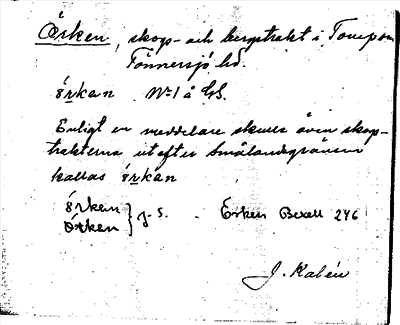 Örken, skogs- och bergstrakt i
Tönnersjö hd.
örkan No 1 å GS.
Enligt en meddelare skulle även skog-
trakterna utefter Smålandsgränsen
kallas örkan
örken } g. S. Erken Bexell 246
Örken
J. Kalén